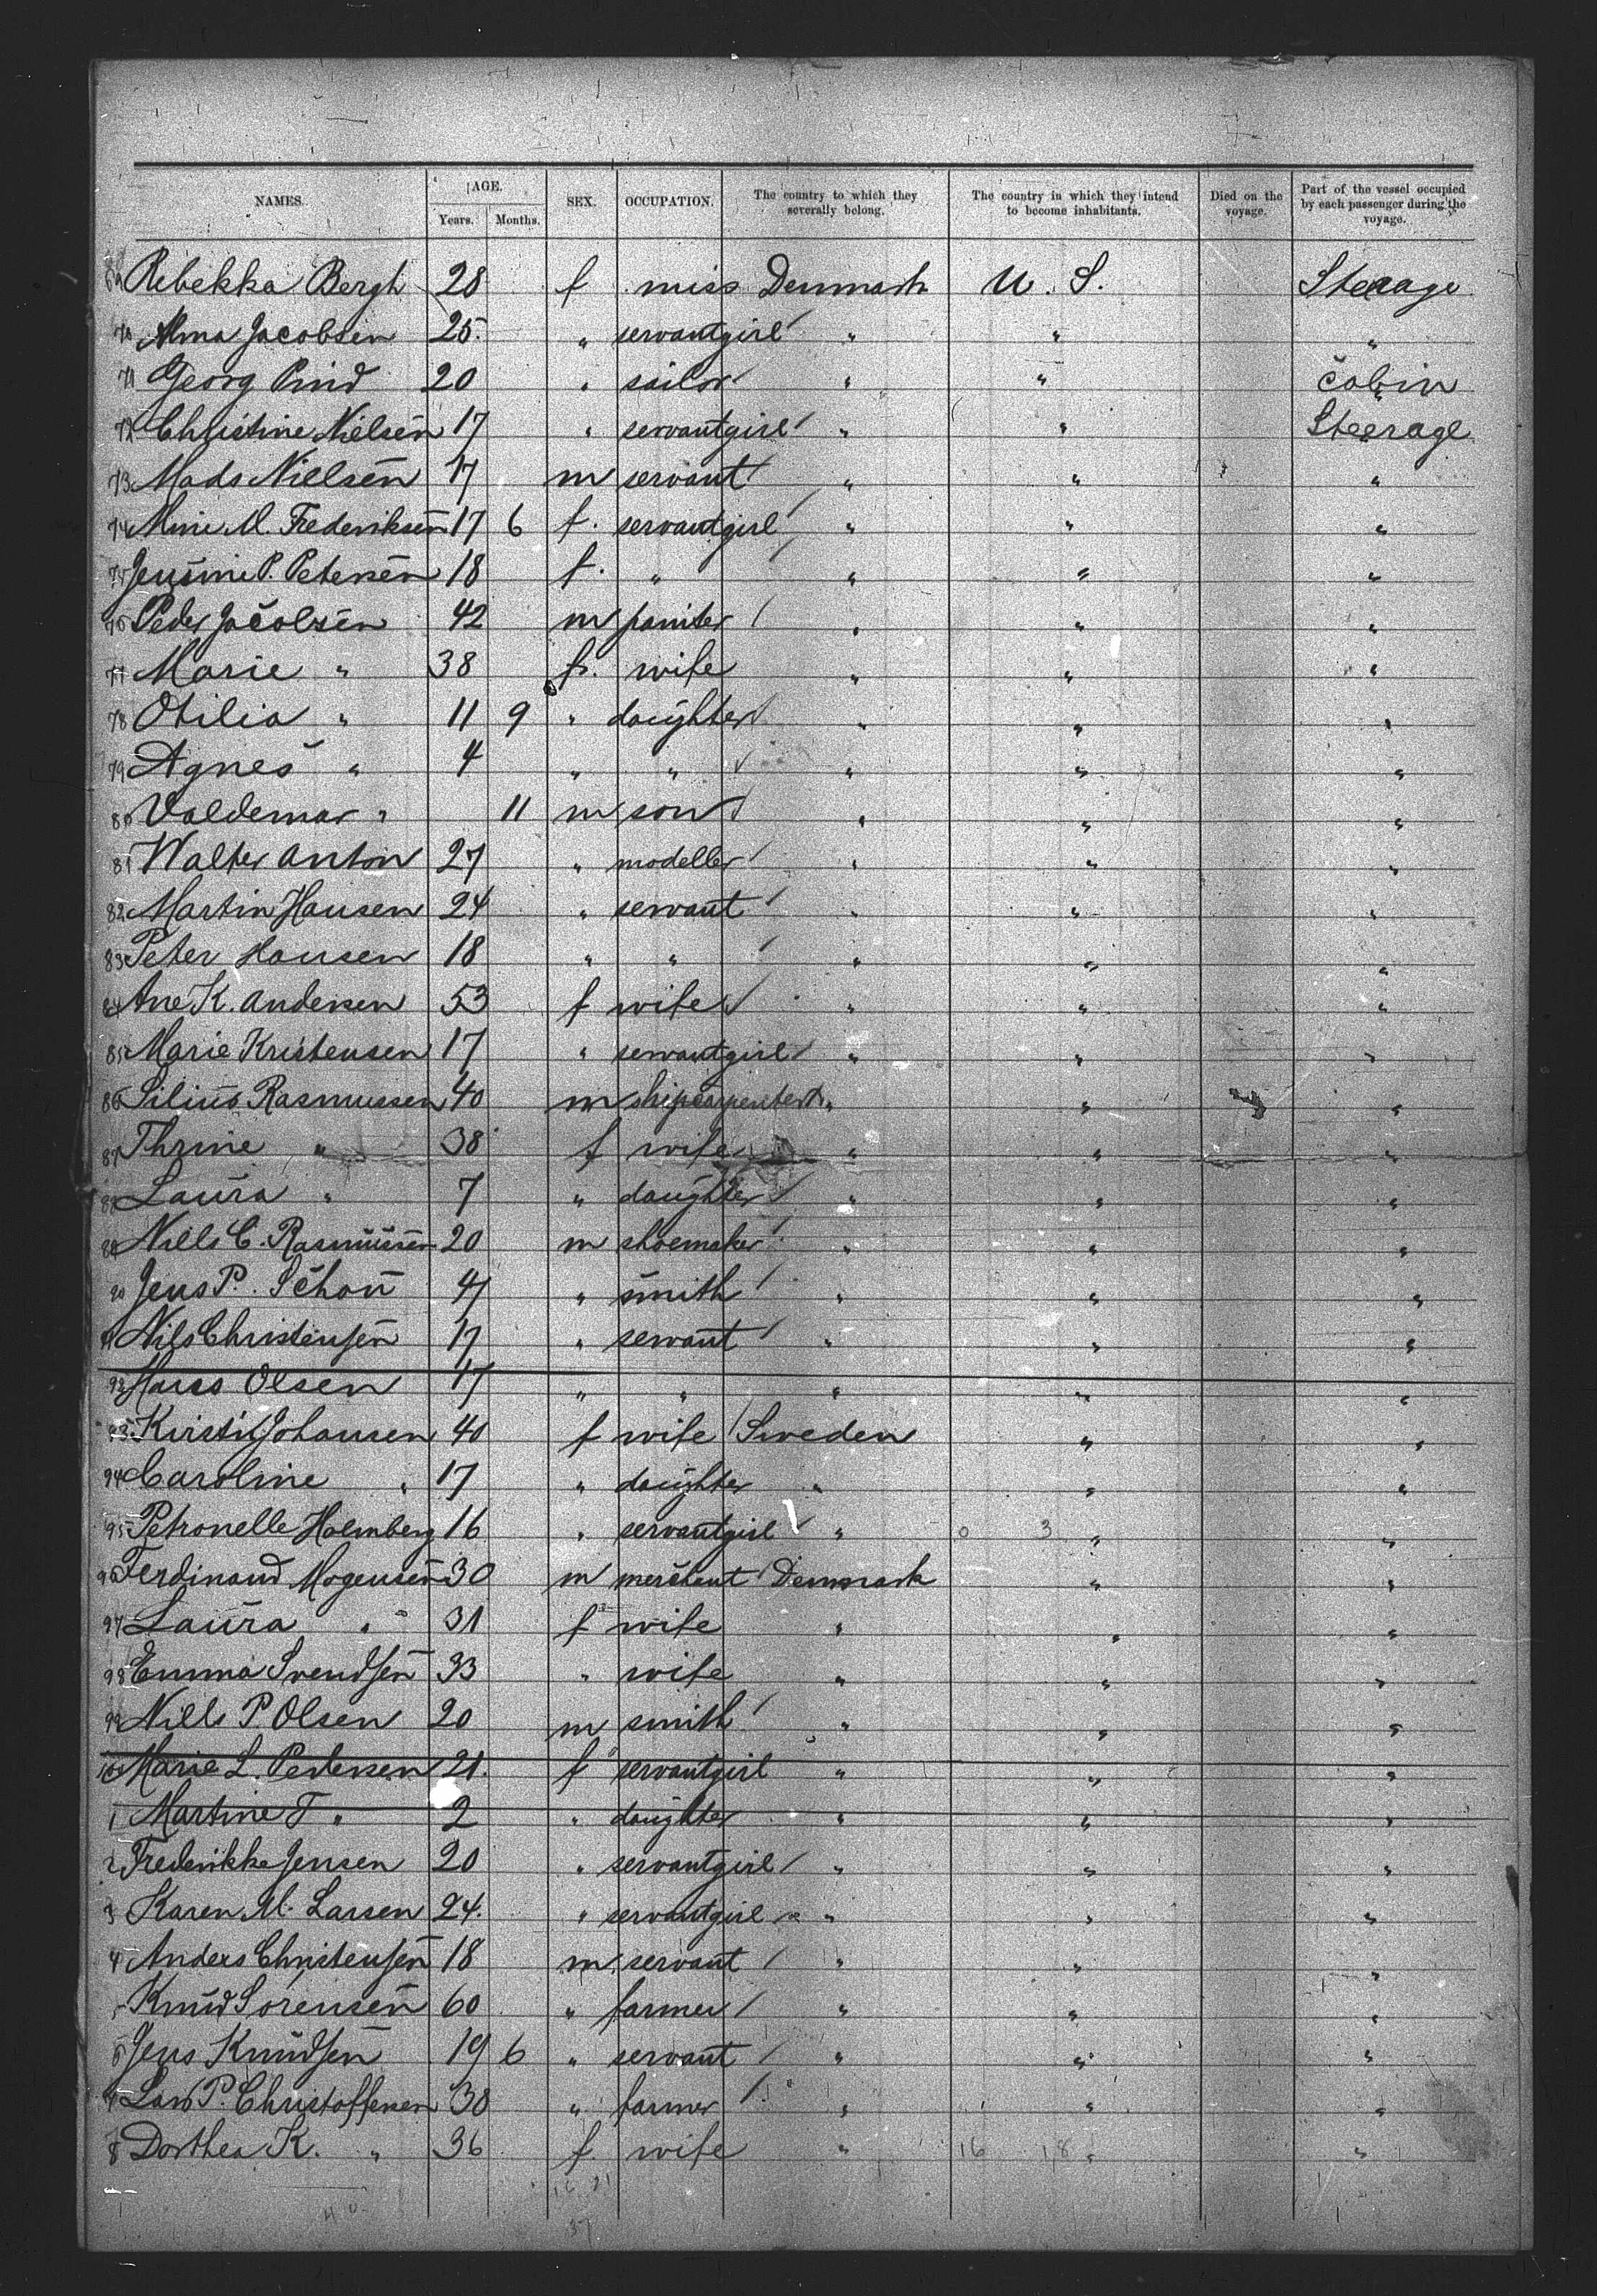 NAMES. AGE. SEX. OCCUPATION. The country to which they severally belong. The country in which they intend to become inhabitants. Died on the voyage. Part of the vessel occupied by each passenger during the voyage.
Years. Months.
69 Rebekka Bergh 28 f miss Denmark U. S. Steerage
70 Alma Jacobsen 25. " servantgirl " " "
71 Georg Pind 20 " sailor " " cabin
72 Christine Nielsen 17 " servantgirl " " Steerage
73 Mads Nielsen 17 m servant " " "
74 Mine M. Frederiksen 17 6 f. servantgirl " " "
75 Jensine P. Petersen 18 f. " " " "
76 Peder Jacobsen 42 m painter " " "
77 Marie " 38 f. wife " " "
78 Otilia " 11 9 " daughter " " "
79 Agnes " 4 " " " " "
80 Valdemar " 11 m son " " "
81 Walter Anton 27 " modeller " " "
82 Martin Hansen 24 " servant " " "
83 Peter Hansen 18 " " " " "
84 Ane K. Andersen 53 f wife " " "
85 Marie Kristensen 17 " servantgirl " " "
86 Silius Rasmussen 40 m shipcarpenter " " "
87 Thrine " 38 f wife " " "
88 Laura " 7 " daughter " " "
89 Niels C. Rasmussen 20 m shoemaker " " "
90 Jens P. Schou 41 " smith " " "
91 Nils Christensen 17 " servant " " "
92 Hans Olsen 17 " " " " "
93 Kirsti Johansen 40 f wife Sweden " "
94 Caroline " 17 " daughter " " "
95 Petronelle Holmberg 16 " servantgirl " 0 3 " "
96 Ferdinand Mogensen 30 m merchant Denmark " "
97 Laura " 31 f wife " " "
98 Emma Svendsen 33 " wife " " "
99 Niels P. Olsen 20 m smith " " "
100 Marie L. Pedersen 21. f servantgirl " " "
1 Martine T " 2 " daughter " " "
2 Frederikke Jensen 20 " servantgirl " " "
3 Karen M. Larsen 24. " servantgirl " " "
4 Anders Christensen 18 m. servant " " "
5 Knud Sörensen 60 " farmer " " "
6 Jens Knudsen 19 6 " servant " " "
7 Lars P. Christoffersen 38 " farmer " " "
8 Dorthea K. " 36 f. wife " 16 18 " "
16 21
40
37